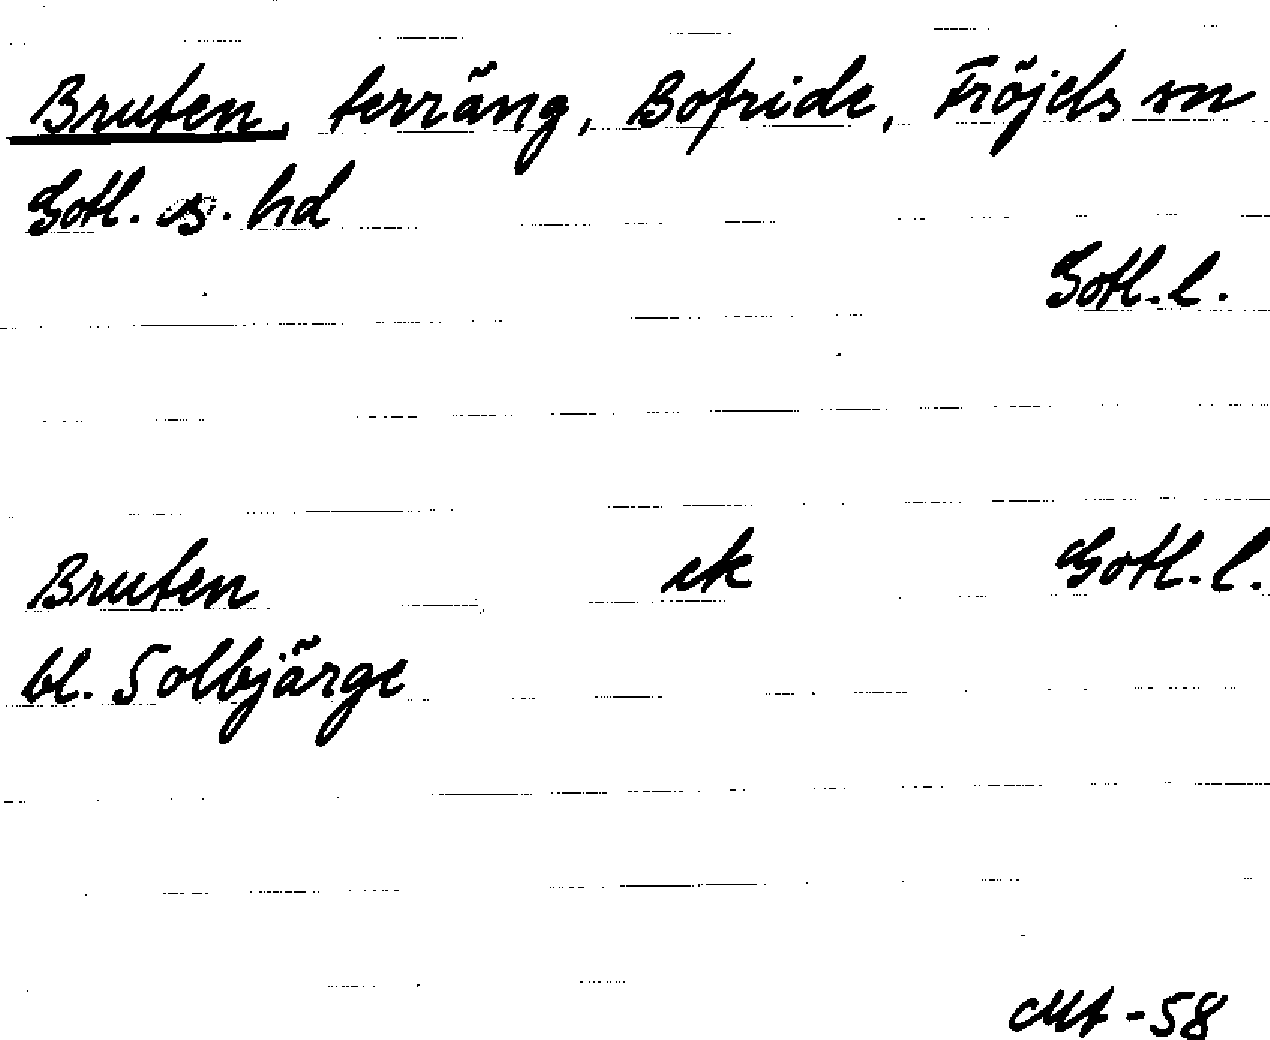 Bruten, terräng, Bofride, Fröjels sn
Gotl. s. hd
Gotl. l.
Bruten ek Gotl. l.
bl. Solbjärge
Mt -58